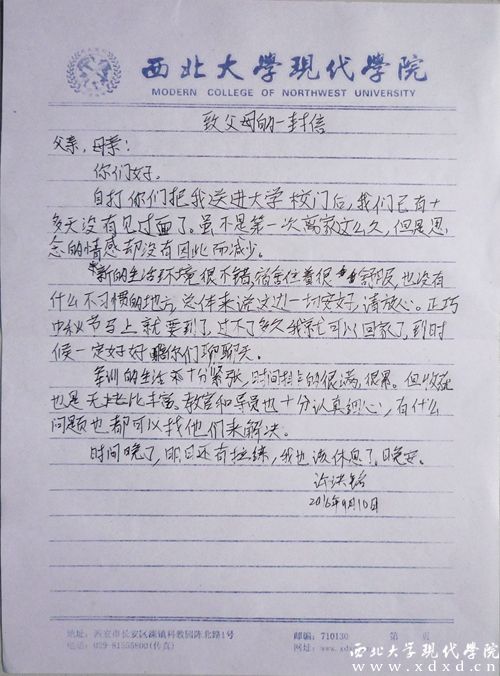 西北大学现代学院
MODERN COLLEGE OF NORTHWEST UNIVERSITY
致父母的一封信
父亲,母亲:
你们好。
自打你们把我送进大学校门后,我们已有十
多天没有见过面了。虽不是第一次离家这么久,但是思
念的情感却没有因此而减少。
新的生活环境很不错,宿舍住着很舒服,也没有
什么不习惯的地方,总体来说这边一切安好,请放心。正巧
中秋节马上就要到了,过不了多久我就可以回家了,到时
候一定好好跟你们聊聊天。
军训的生活十分紧张,时间排的很满,很累。但收获
也是无比丰富。教官和导员也十分认真细心,有什么
问题也都可以找他们来解决。
时间晚了,明日还有拉练,我也该休息了,晚安。
许
2016年9月10日
地址:西安市长安区滦镇科教园陈北路1号
邮编:710130
第 页
电话:029-81555800(传真)
网址:www.xd
西北大学现代学院
www.xdxd.cn